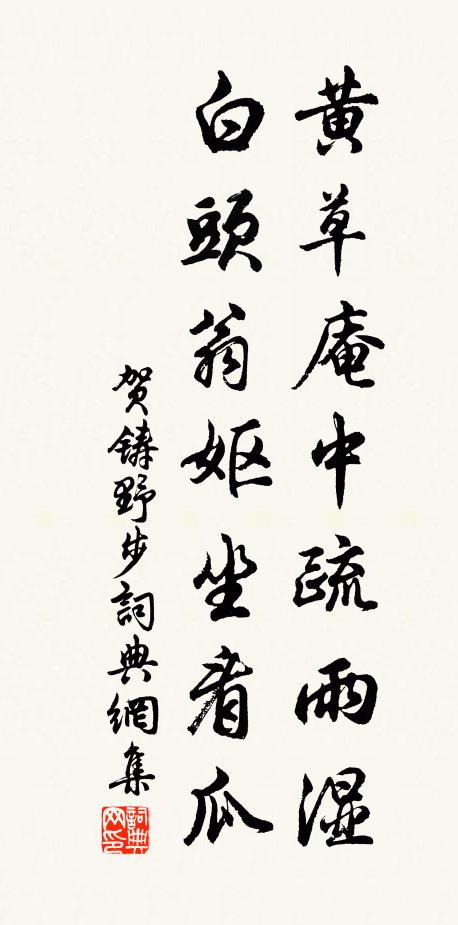 黄草庵中疏雨湿
白頭翁嫗坐看瓜
贺铸野步詞典網集
詞典网印